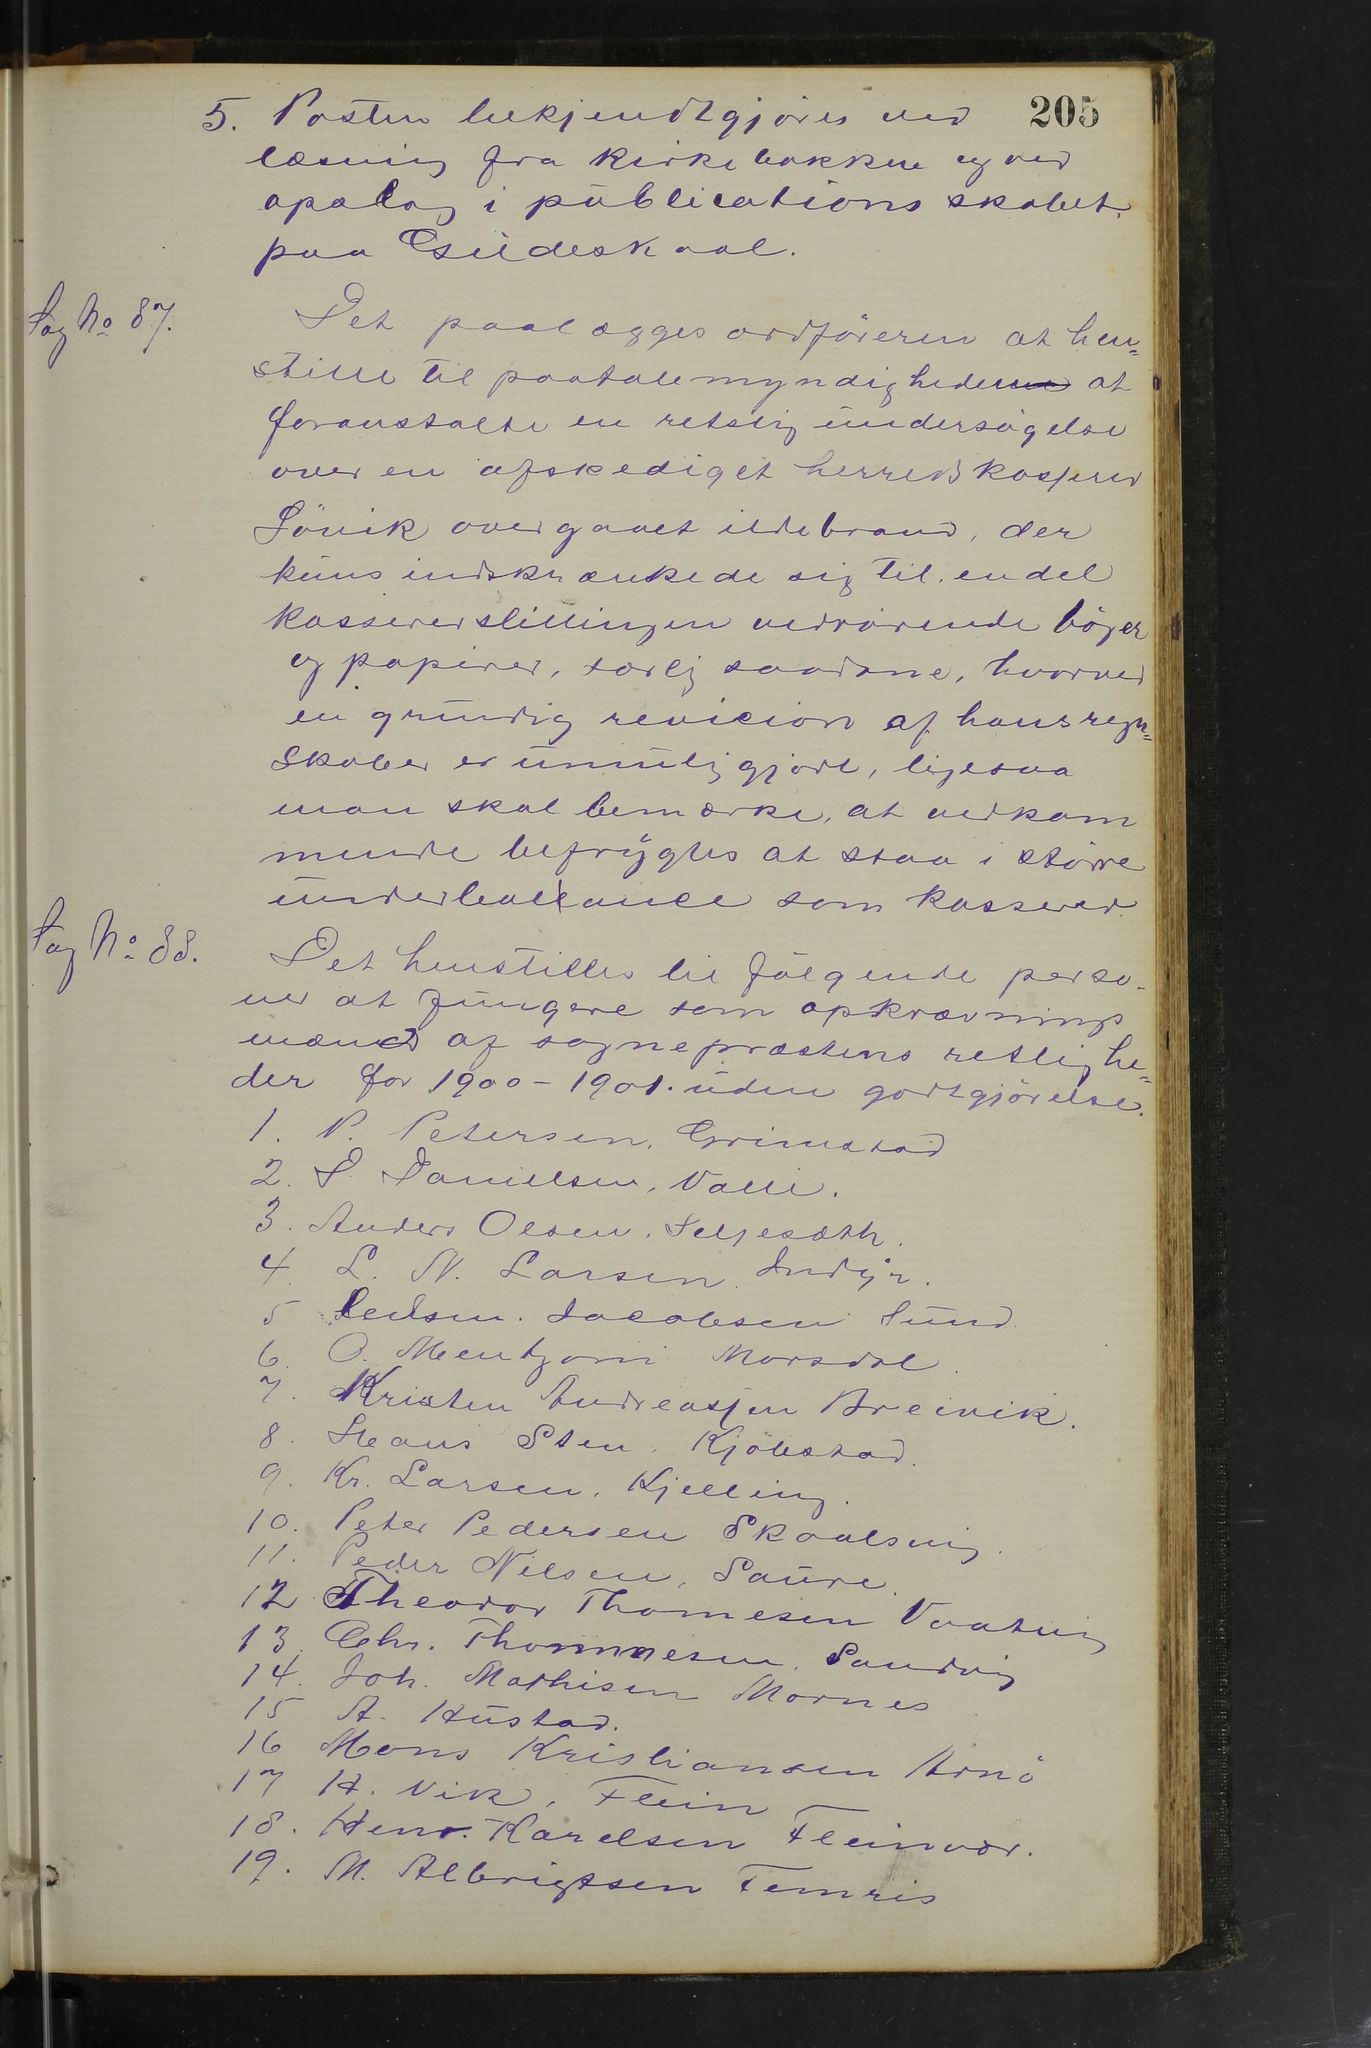 205
5. Posten bekjendtgjöres ved
læsning fra kirkebakken og ved
opslag i publications skabet
paa Gildeskaal.
Sag No 87.
Det paalægges ordföreren at hen=
stille til paatalemyndigheden at
foranstalte en retslig undersögelse
over en afskediget herredskasserer
Sövik overgaaet ildebrand, der
kuns indskrænkede sig til en del
kassererstillingen vedrörende böger
og papirer, særlig saadane, hvorved
en grundig revision af hans regn=
skaber er umuliggjort, ligesaa
man skal bemærke, at vedkom
mende befrygtes at staa i större
underballance som kasserer.
Sag No 88.
Det henstilles til fölgende perso-
ner at fungere som opkrævnings
mænd af sognepræstens rettighe=
der for 1900-1901. uden godtgjörelse.
1. P. Petersen, Grimstad
2. D. Danielsen, Valle.
3. Anders Olsen, Seljesæth.
4. L. N. Larsen Indyr.
5 Jacobsen Sund
6. O. Mentzoni Morsdal.
7. Kristen Andreassen Breivik.
8. Hans Sten, Kjöbstad.
9. Kr. Larsen, Kjelling.
10. Peter Pedersen Skaalsvig.
11. Peder Nilsen, Saure.
12 Theodor Thomesen Vaatvig
13 Chr. Thommesen, Sandvig
14. Joh. Mathisen Mornes
15 A. Hustad.
16 Mons Kristiansen Arnö
17 H. Vik, Flein
18. Henr. Karelsen Fleinvær.
19. M. Albrigtsen Femris